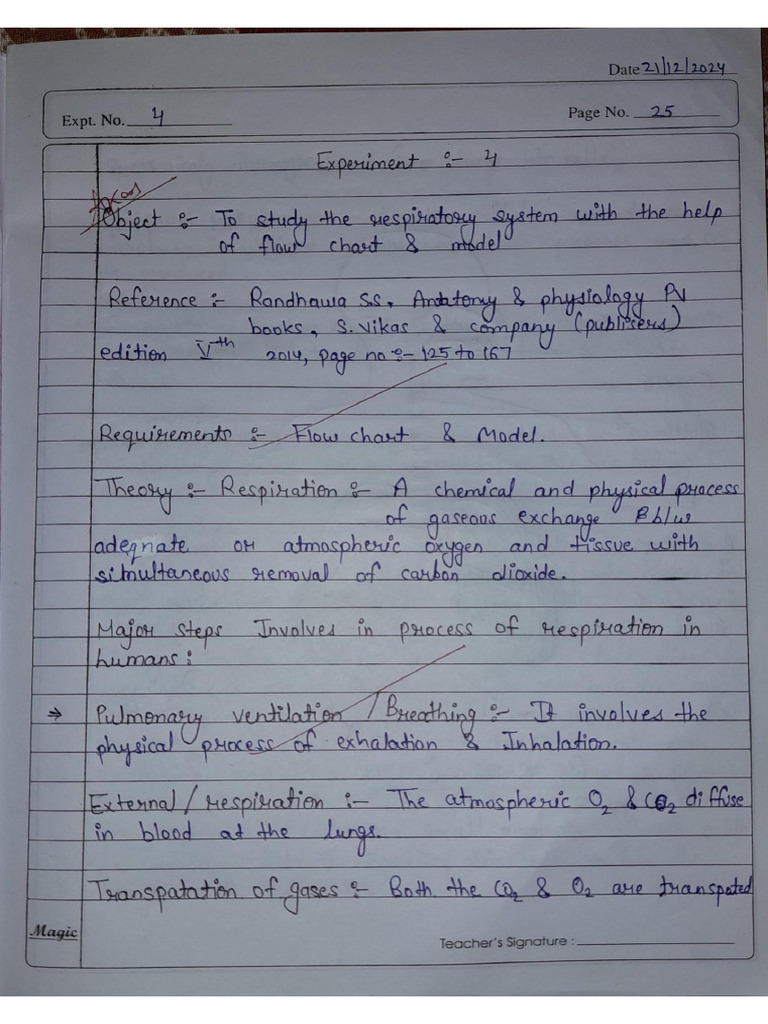 Date 21/12/2024
Expt. No. 4
Page No. 25
Experiment :- 4
Object :- To study the respiratory system with the help
of flow chart & model
Reference :- Randhawa S.S, Anatomy & physiology PV
books, S. Vikas & company (publisers)
edition Vth 2014, page no :- 125 to 167
Requirements :- Flow chart & Model.
Theory :- Respiration :- A chemical and physical process
of gaseous exchange B b/w
adeqnate or atmospheric oxygen and tissue with
simultaneous removal of carbon dioxide.
Major steps Involves in process of respiration in
humans:
→ Pulmonary ventilation / Breathing :- It involves the
physical process of exhalation & Inhalation.
External / respiration :- The atmospheric O2 & CO2 diffuse
in blood at the lungs.
Transpatation of gases :- Both the CO2 & O2 are transpated
Magic
Teacher's Signature :